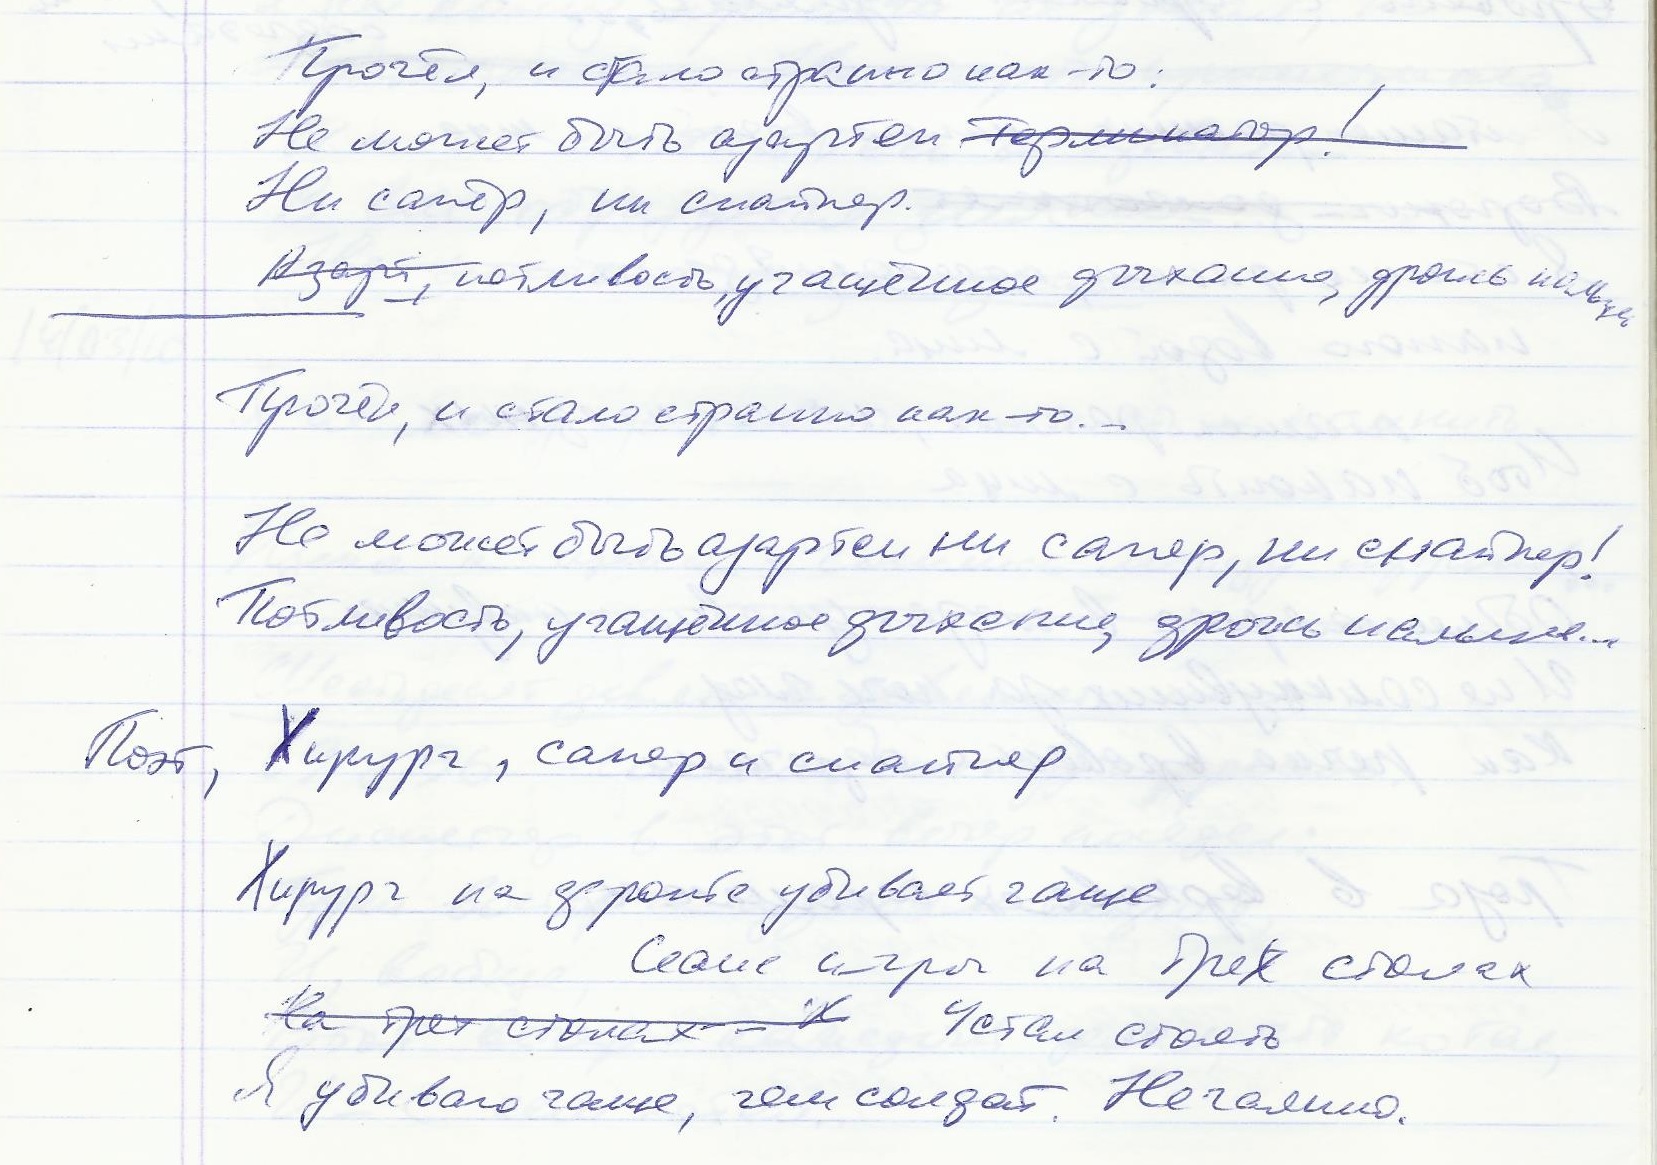 Прочёл, и стало странно как-то:
Не может быть азартен Терминатор!
Ни сапёр, ни снайпер.
Азарт, потливость, учащённое дыхание, дрожь пальцев
Прочёл, и стало странно как-то...
Не может быть азартен ни сапер, ни снайпер!
Потливость, учащённое дыхание, дрожь пальцев...
Поэт, Хирург, сапер и снайпер
Хирург на фронте убивает чаще
Сеанс игры на трех столах
На трех столах - Х Устал стоять
Я убиваю чаще, чем солдат. Нечаянно.